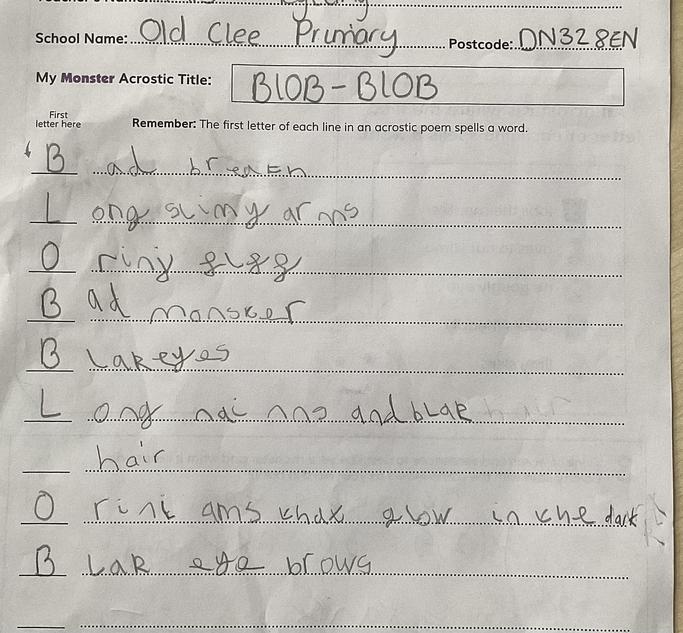 School Name: Old Clee Primary Postcode: DN32 8EN
My Monster Acrostic Title: BlOB - BLOB
First letter here
Remember: The first letter of each line in an acrostic poem spells a word.
B ad breath
L ong slimy arms
O riny
B ad monster
B Lak eyes
L ong and blak
hair
O rini ams that glow in the dark
B Lak eye brows